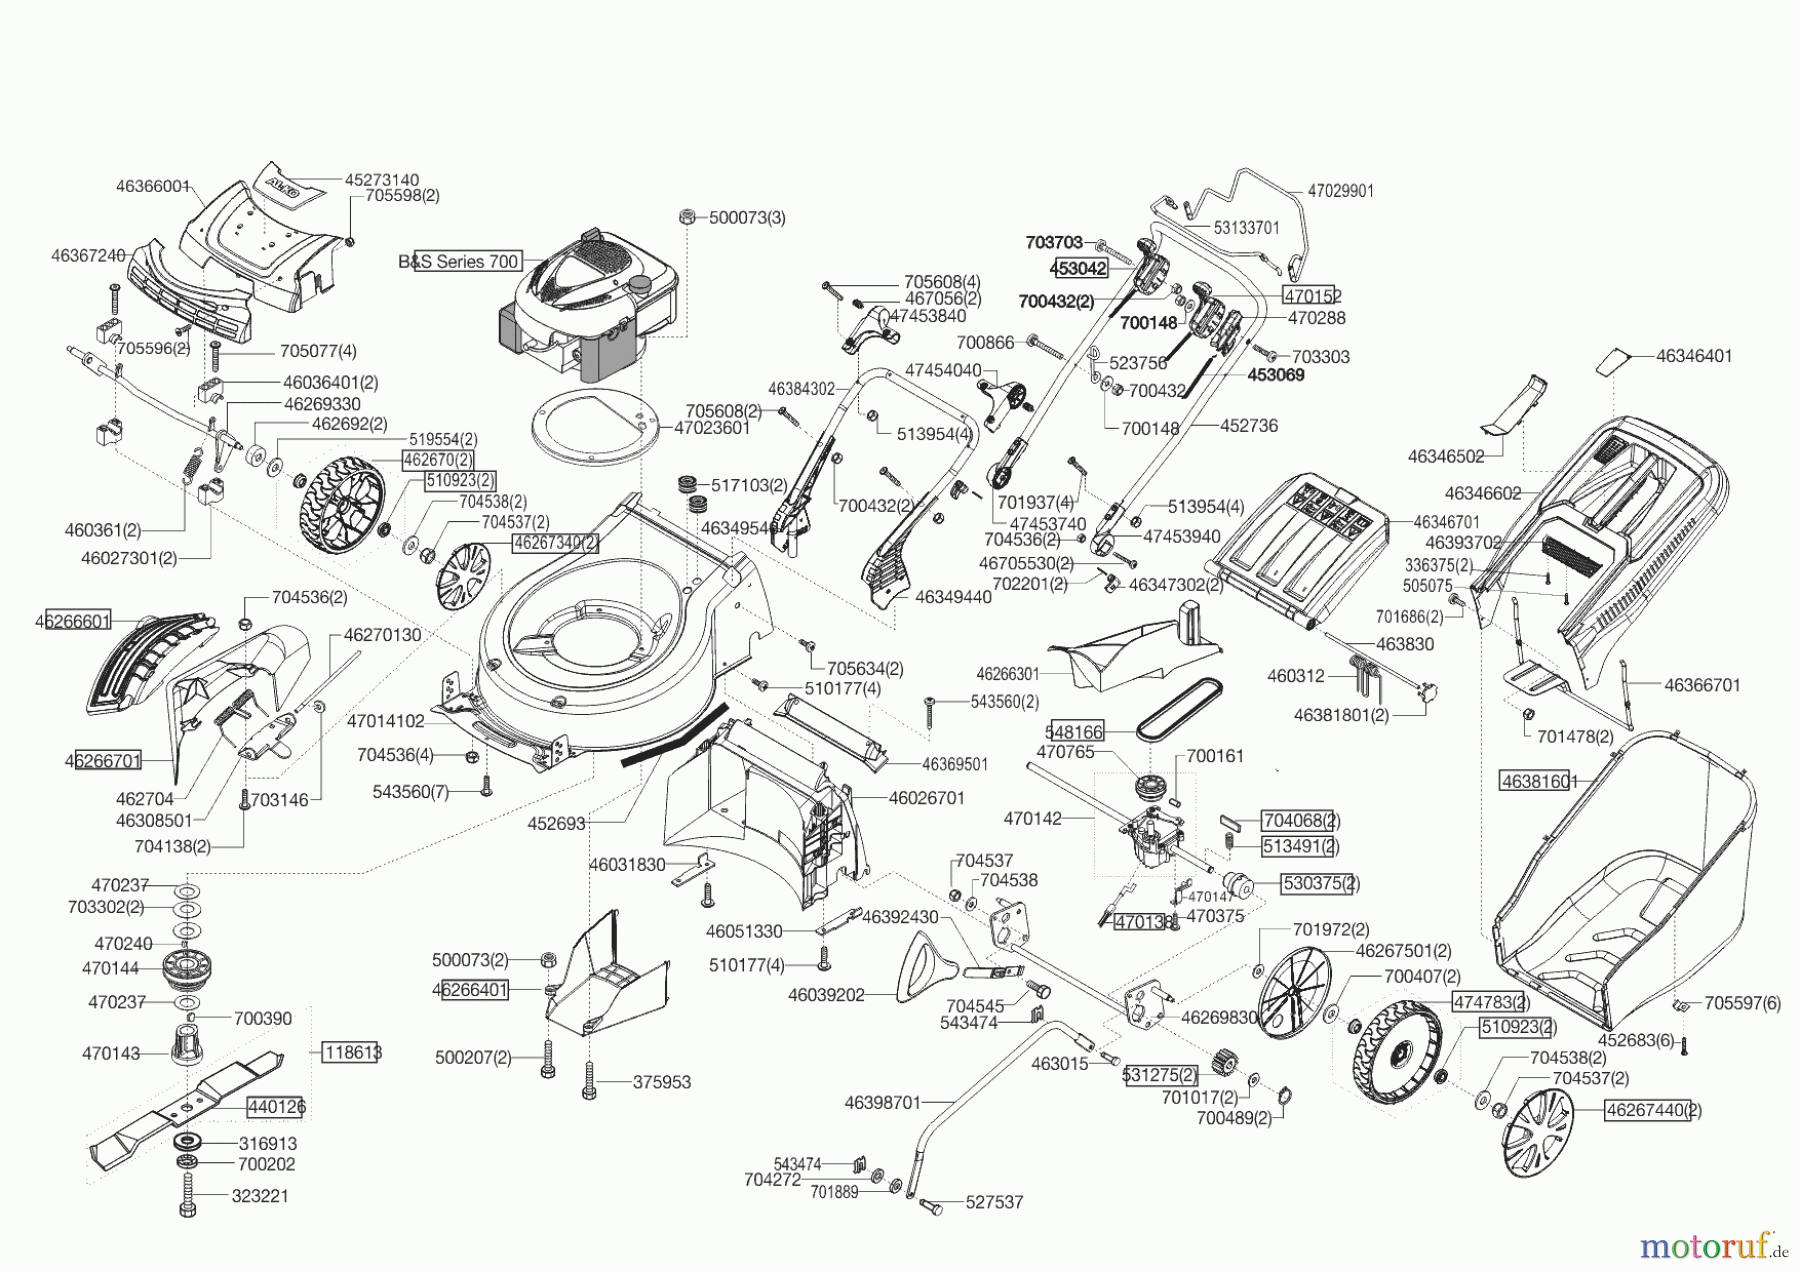 46366001
AL-KO
45273140
705598(2)
46367240
705596(2)
705077(4)
46036401(2)
46269330
462692(2)
519554(2)
462670(2)
510923(2)
704538(2)
704537(2)
46267340(2)
460361(2)
46027301(2)
B&S Series 700
500073(3)
47023601
517103(2)
705608(4)
467056(2)
47453840
46384302
705608(2)
513954(4)
700432(2)
46349540
46349440
47029901
53133701
703703
453042
700432(2)
470152
700148
470288
700866
523756
703303
453069
700432
47454040
700148
452736
701937(4)
513954(4)
47453740
704536(2)
47453940
46705530(2)
702201(2)
46347302(2)
46346401
46346502
46346602
46346701
46393702
336375(2)
505075
701686(2)
463830
460312
46381801(2)
46366701
701478(2)
4638160
46266601
704536(2)
46270130
46266701
462704
46308501
703146
704138(2)
47014102
704536(4)
543560(7)
705634(2)
510177(4)
46266301
543560(2)
46369501
46026701
452693
46031830
46051330
510177(4)
548166
470765
700161
470142
704068(2)
513491(2)
530375(2)
470147
470375
47013
704537
704538
46392430
46039202
704545
543474
46269830
463015
531275(2)
701017(2)
700489(2)
701972(2)
46267501(2)
700407(2)
474783(2)
510923(2)
704538(2)
704537(2)
46267440(2)
705597(6)
452683(6)
470237
703302(2)
470240
470144
470237
700390
470143
118613
440126
316913
700202
323221
500073(2)
46266401
500207(2)
375953
46398701
543474
704272
701889
527537
motoruf.de